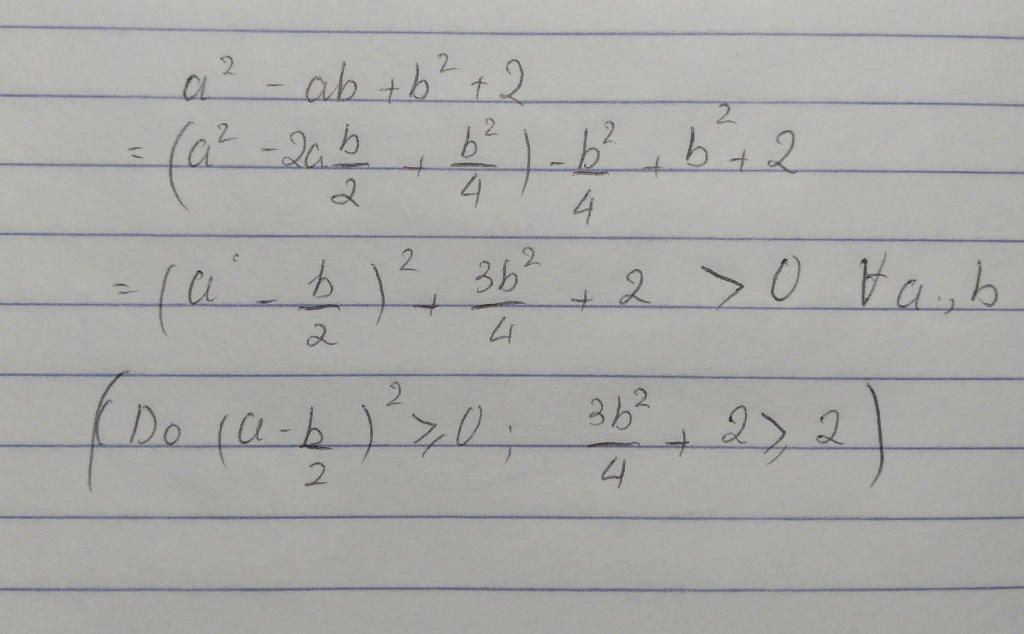 a² - ab + b² + 2
= (a² - 2a b/2 + b²/4) - b²/4 + b² + 2
= (a - b/2)² + 3b²/4 + 2 > 0 ∀a, b
(Do (a - b/2)² ⩾ 0; 3b²/4 + 2 ⩾ 2)